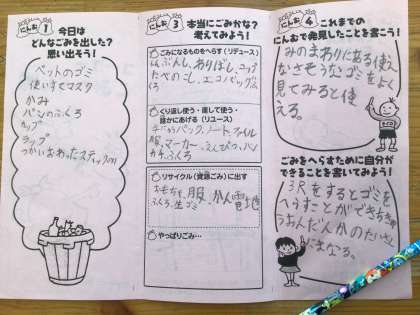 にんむ 1
今日は
どんなごみを出した?
思い出そう!
ペットのゴミ
使いすてマスク
かみ
パンのふくろ
カップ
ラップ
つかいおわったスティックのり
にんむ 3
本当にごみかな?
考えてみよう!
ごみになるものをへらす(リデュース)
しんぶんし、わりばし、コップ
たべのこし、エコバッグ
くり返し使う・直して使う・
誰かにあげる(リユース)
ノート、ファイル
服、マーカー、えんぴつ、ハン
カチ、ふくろ
リサイクル(資源ごみ)に出す
おもちゃ、服、かん、電地
ふくろ、生ゴミ
やっぱりごみ…
にんむ 4
これまでの
にんむで発見したことを書こう!
みのまわりにある使え
なさそうなゴミをよく
見てみると使
える。
ごみをへらすために自分が
できることを書いてみよう!
3Rをするとゴミを
へらすことができちきゅ
うおんだんかのたいさく
になる。